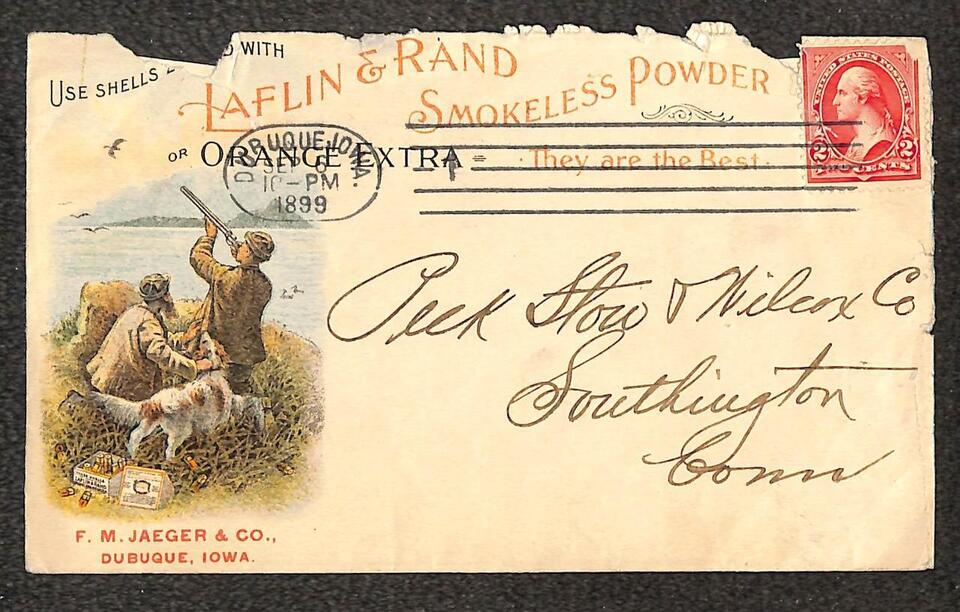 USE SHELLS D WITH
LAFLIN & RAND
SMOKELESS POWDER
OR ORANGE EXTRA
· They are the Best ·
DUBUQUE, IOWA.
SEP 6
10-PM
1899
UNITED STATES POSTAGE
2 2
TWO CENTS
Peck Stow & Wilcox Co
Southington
Conn
F. M. JAEGER & CO.,
DUBUQUE, IOWA.